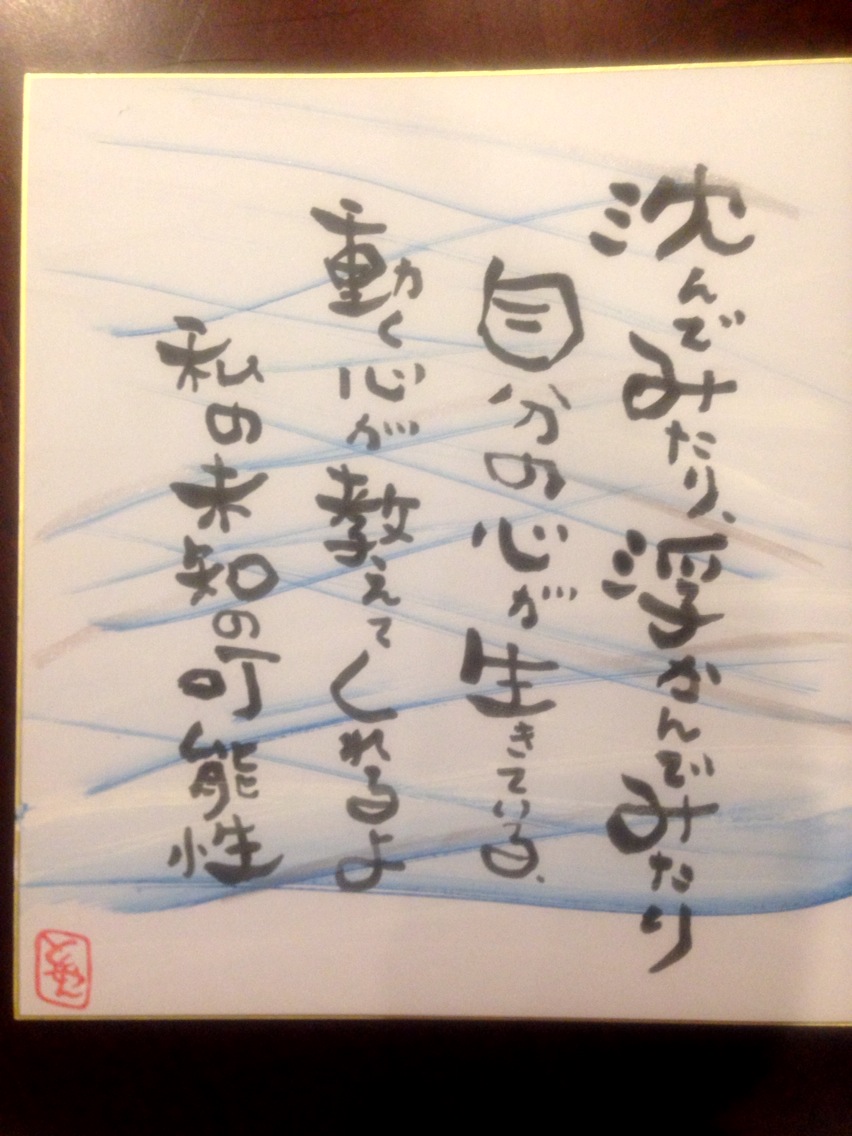 沈んでみたり、浮かんでみたり
自分の心が生きている、
動く心が教えてくれるよ
私の未知の可能性